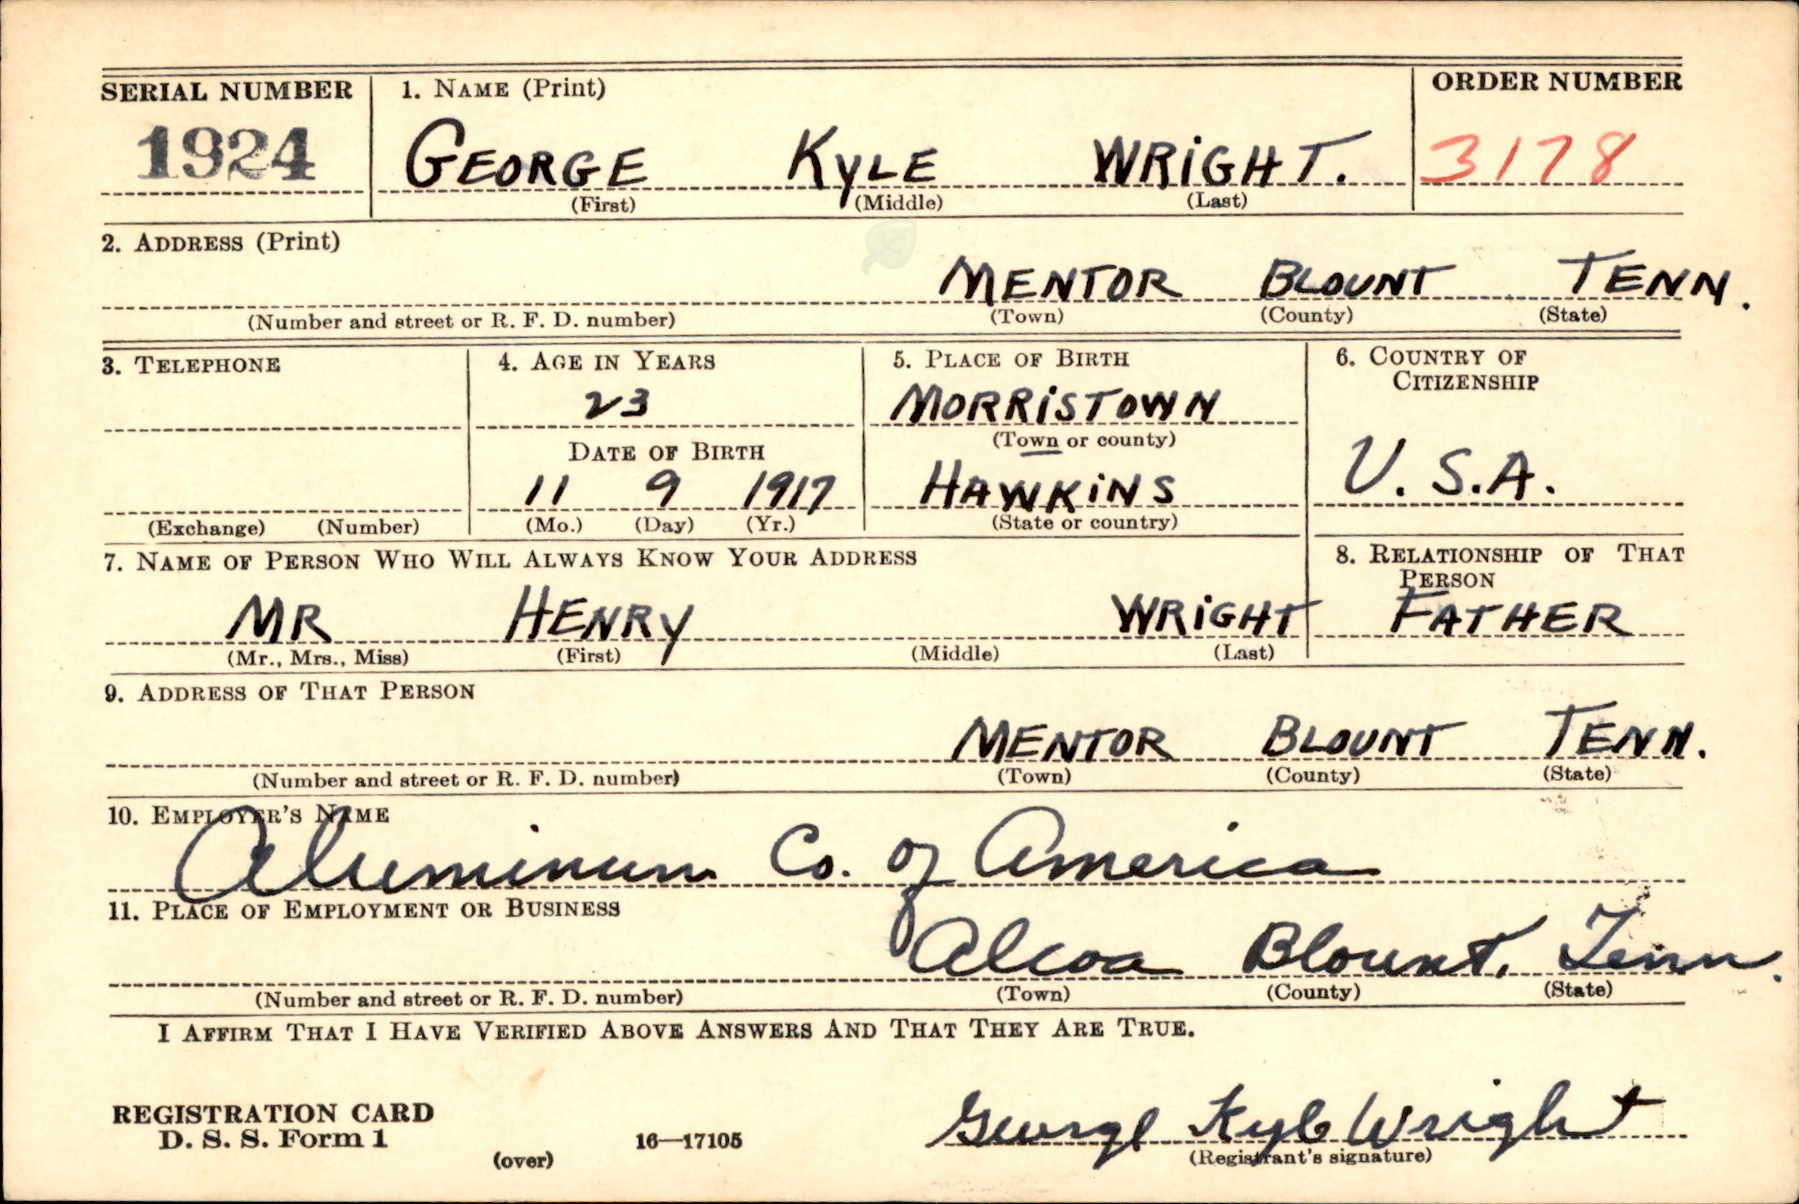 SERIAL NUMBER 1. NAME (Print) ORDER NUMBER
1924 GEORGE KYLE WRIGHT. 3178
(First) (Middle) (Last)
2. ADDRESS (Print)
MENTOR BLOUNT TENN.
(Number and street or R. F. D. number) (Town) (County) (State)
3. TELEPHONE 4. AGE IN YEARS 5. PLACE OF BIRTH 6. COUNTRY OF
CITIZENSHIP
23 MORRISTOWN
(Town or county)
DATE OF BIRTH
11 9 1917 HAWKINS U.S.A.
(Exchange) (Number) (Mo.) (Day) (Yr.) (State or country)
7. NAME OF PERSON WHO WILL ALWAYS KNOW YOUR ADDRESS 8. RELATIONSHIP OF THAT
PERSON
MR HENRY WRIGHT FATHER
(Mr., Mrs., Miss) (First) (Middle) (Last)
9. ADDRESS OF THAT PERSON
MENTOR BLOUNT TENN.
(Number and street or R. F. D. number) (Town) (County) (State)
10. EMPLOYER'S NAME
Aluminum Co. of America
11. PLACE OF EMPLOYMENT OR BUSINESS
Alcoa Blount, Tenn.
(Number and street or R. F. D. number) (Town) (County) (State)
I AFFIRM THAT I HAVE VERIFIED ABOVE ANSWERS AND THAT THEY ARE TRUE.
REGISTRATION CARD
D. S. S. Form 1 16—17105 George Kyle Wright
(over) (Registrant's signature)